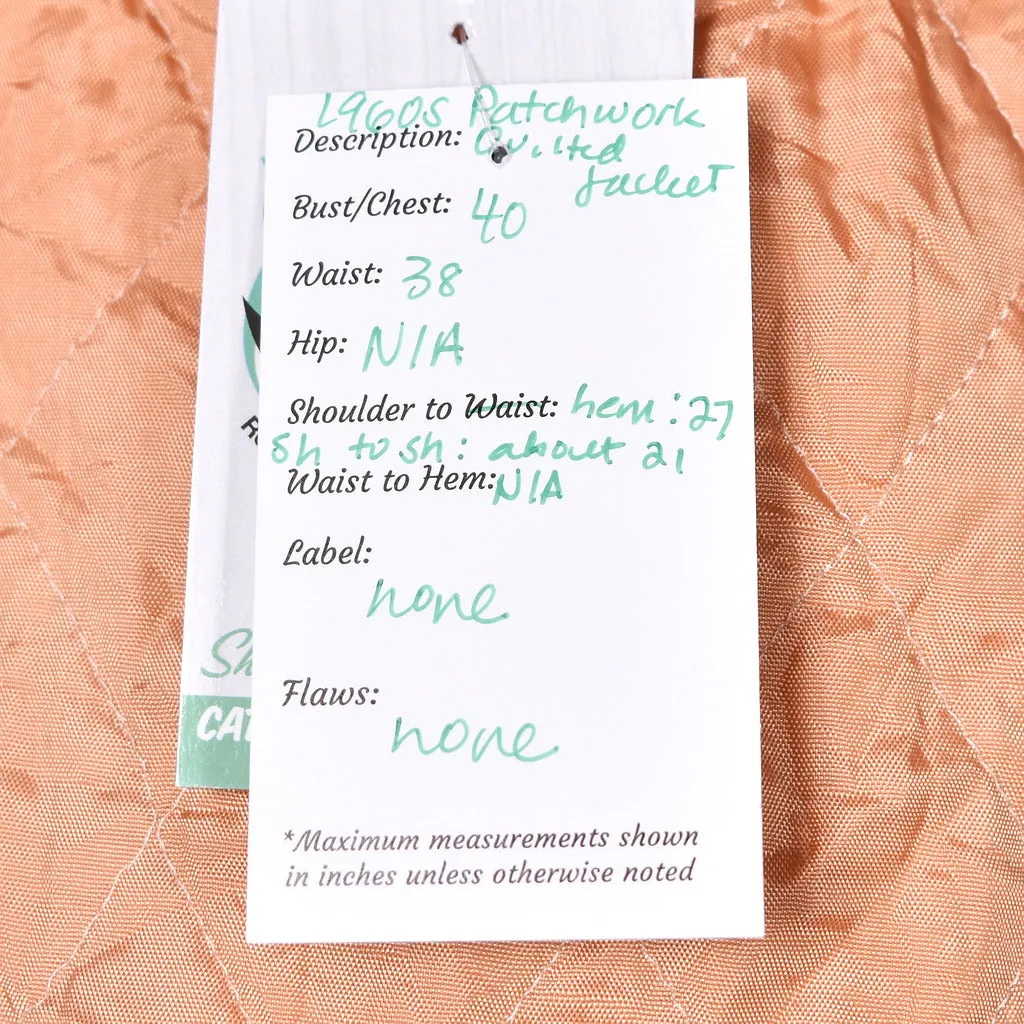 1960s Patchwork
Description: Quilted
Jacket
Bust/Chest: 40
Waist: 38
Hip: N/A
Shoulder to Waist: hem: 27
Sh to sh: about 21
Waist to Hem: N/A
Label:
none
Flaws:
none
*Maximum measurements shown
in inches unless otherwise noted
Sh
CAT